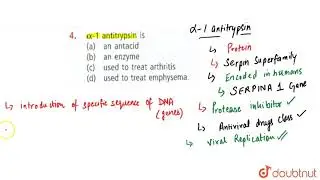 4. α-1 antitrypsin is
(a) an antacid
(b) an enzyme
(c) used to treat arthritis
(d) used to treat emphysema.
↳ introduction of specific sequence of DNA
(genes)
α-1 antitrypsin
↳ Protein
↳ Serpin Superfamily
↳ Encoded in humans
↳ SERPINA 1 Gene
↳ Protease inhibitor ✓
↳ Antiviral drugs class ✓
↳ Viral Replication ✓
doubtnut